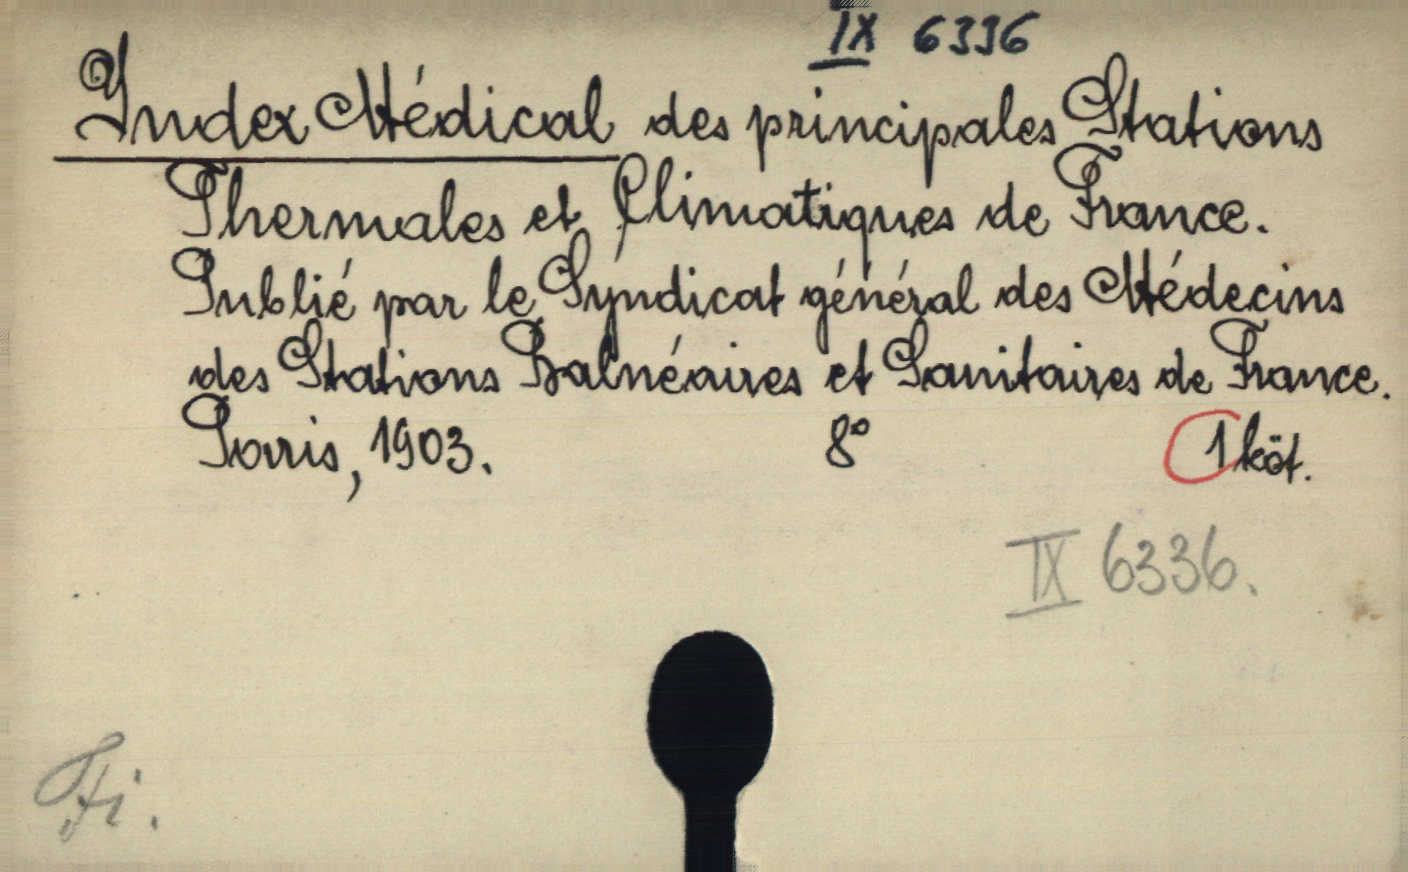 IX 6336
Index Médical des principales Stations
Thermales et Climatiques de France.
Publié par le Syndicat général des Médecins
des Stations Balnéaires et Sanitaires de France.
Paris, 1903. 8° 1 köt.
IX 6336.
Fi.